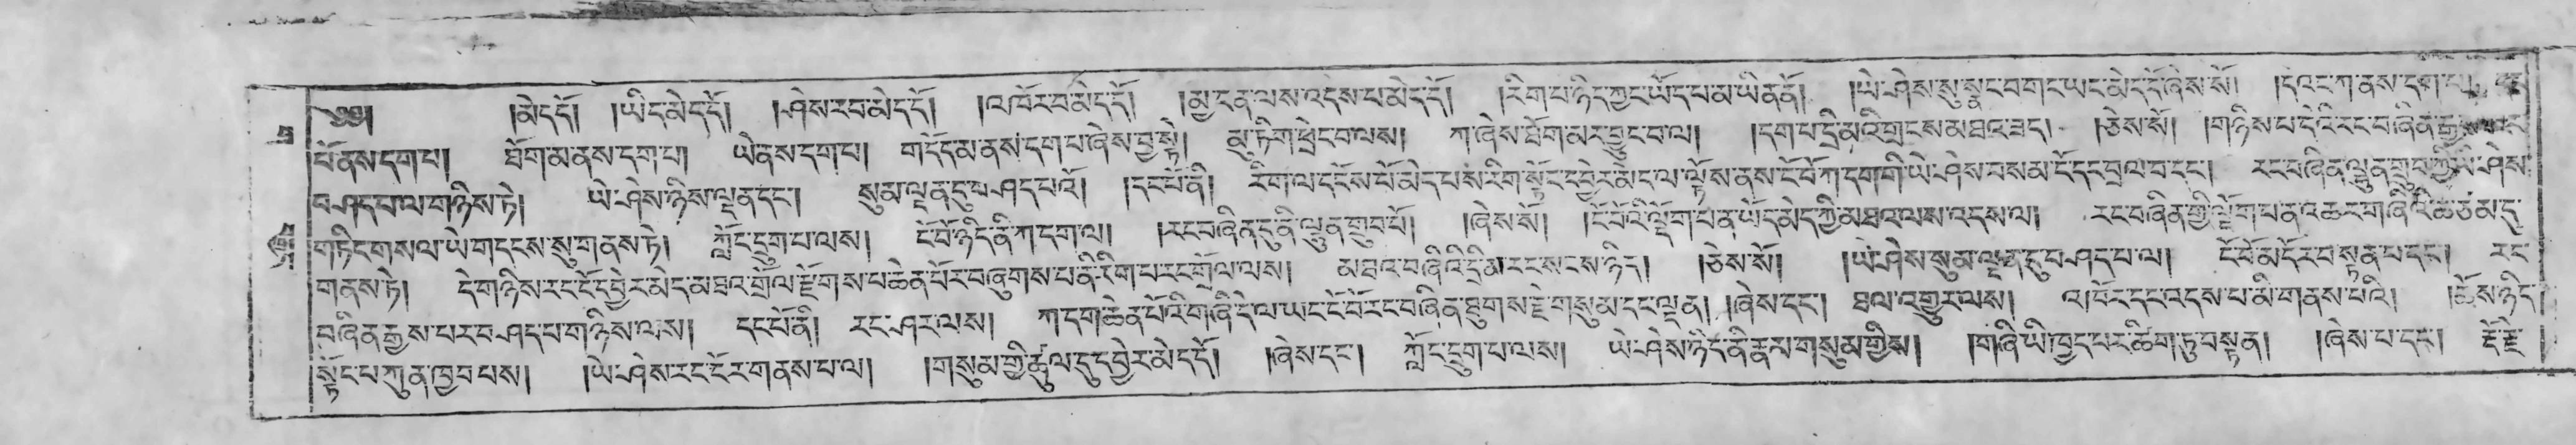 ༄༅། །མེད་དོ། །ཡིད་མེད་དོ། །ཤེས་རབ་མེད་དོ། །འཁོར་བ་མེད་དོ། །མྱ་ངན་ལས་འདས་པ་མེད་དོ། །རིག་པ་ཉིད་ཀྱང་ཡོད་པ་མ་ཡིན་ནོ། །ཡེ་ཤེས་སུ་སྣང་བ་གང་ཡང་མེད་དོ་ཞེས་སོ། །དེ་འང་ཀ་ནས་དག་པ།
པོ་ནས་དག་པ། ཐོག་མ་ནས་དག་པ། ཡེ་ནས་དག་པ། གདོད་མ་ནས་དག་པ་ཞེས་བྱ་སྟེ། མུ་ཏིག་ཕྲེང་བ་ལས། ཀ་ཞེས་ཐོག་མར་བྱུང་བ་ལ། །དག་པ་དྲི་མའི་གྲངས་མཐའ་ཟད། །ཅེས་སོ། །གཉིས་པ་དེའི་རང་བཞིན་རྒྱས་པར
བཤད་པ་ལ་གཉིས་ཏེ། ཡེ་ཤེས་ཉིས་ལྡན་དང་། སུམ་ལྡན་དུ་བཤད་པའོ། །དང་པོ་ནི། རིག་ལ་དངོས་པོ་མེད་པས་རིག་སྟོང་དབྱེར་མེད་ལ་ལྟོས་ནས་ངོ་བོ་ཀ་དག་གི་ཡེ་ཤེས་བསམ་ངོ་དང་བྲལ་བ་དང་། རང་བཞིན་ལྷུན་གྲུབ་ཀྱི་ཡེ་ཤེས
གཏིང་གསལ་ཡེ་གདངས་སུ་གནས་ཏེ། ཀློང་དྲུག་པ་ལས། ངོ་བོ་ཉིད་ནི་ཀ་དག་ལ། །རང་བཞིན་ཉིད་ནི་ལྷུན་གྲུབ་པོ། །ཞེས་སོ། །ངོ་བོའི་ལྡོག་པ་ན་ཡོད་མེད་ཀྱི་མཐའ་ལས་འདས་ལ། རང་བཞིན་གྱི་ལྡོག་པ་ན་འཆར་གཞིའི་ཆ་ཙམ་དུ
གནས་ཏེ། དེ་གཉིས་རང་ངོ་དབྱེར་མེད་མཐའ་གྲོལ་རྫོགས་པ་ཆེན་པོར་བཞུགས་པ་ནི་རིག་པ་རང་གྲོལ་ལས། མཐའ་བཞིའི་དྲི་མ་རང་སངས་ཉིད། །ཅེས་སོ། །ཡེ་ཤེས་སུམ་ལྡན་དུ་བཤད་པ་ལ། ངོ་བོ་མདོར་བསྟན་པ་དང་། རང
བཞིན་རྒྱས་པར་བཤད་པ་གཉིས་ལས། དང་པོ་ནི། རང་ཤར་ལས། ཀ་དག་ཆེན་པོའི་གཞི་དེ་ལ་ཡང་ངོ་བོ་རང་བཞིན་ཐུགས་རྗེ་གསུམ་དང་ལྡན། །ཞེས་དང་། ཐལ་འགྱུར་ལས། འཁོར་དང་འདས་པ་མི་གནས་པའི། །ཆོས་ཉིད
སྟོང་པ་ཀུན་ཁྱབ་པས། །ཡེ་ཤེས་རང་ངོར་གནས་པ་ལ། །གསུམ་གྱི་ཚུལ་དུ་དབྱེར་མེད་དོ། །ཞེས་དང་། ཀློང་དྲུག་པ་ལས། ཡེ་ཤེས་ཉིད་ནི་རྣམ་གསུམ་གྱིས། །གཞི་ཡི་ཁྱད་པར་ཚིག་ཏུ་བསྟན། །ཞེས་པ་དང་། རྡོ་རྗེ